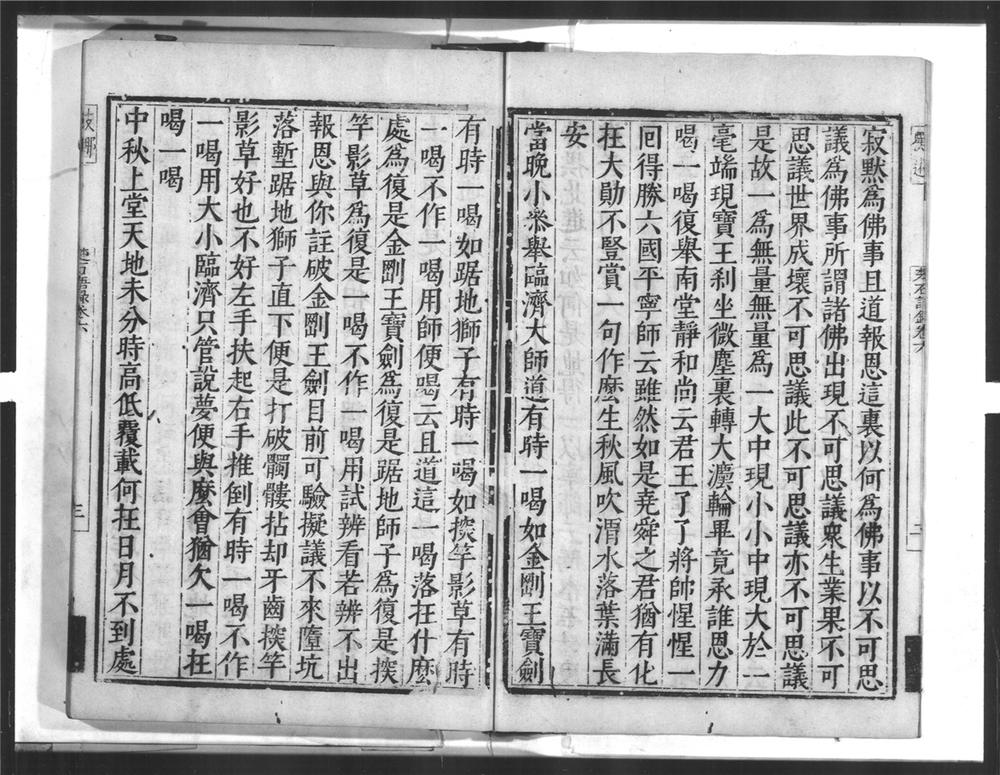 寂默爲佛事且道報恩這裏以何爲佛事以不可思
議爲佛事所謂諸佛出現不可思議衆生業果不可
思議世界成壞不可思議此不可思議亦不可思議
是故一爲無量無量爲一大中現小小中現大於一
毫端現寶王刹坐微塵裏轉大灋輪畢竟承誰恩力
喝一喝復舉南堂靜和尚云君王了了將帥惺惺一
囘得勝六國平寧師云雖然如是堯舜之君猶有化
在大勛不豎賞一句作麽生秋風吹渭水落葉滿長
安
當晚小叅舉臨濟大師道有時一喝如金剛王寶劍
有時一喝如踞地獅子有時一喝如探竿影草有時
一喝不作一喝用師便喝云且道這一喝落在什麽
處爲復是金剛王寶劍爲復是踞地師子爲復是探
竿影草爲復是一喝不作一喝用試辨看若辨不出
報恩與你註破金剛王劍目前可驗擬議不來墮坑
落塹踞地獅子直下便是打破髑髏拈却牙齒探竿
影草好也不好左手扶起右手推倒有時一喝不作
一喝用大小臨濟只管說夢便與麽會猶欠一喝在
喝一喝
中秋上堂天地未分時高低覆載何在日月不到處